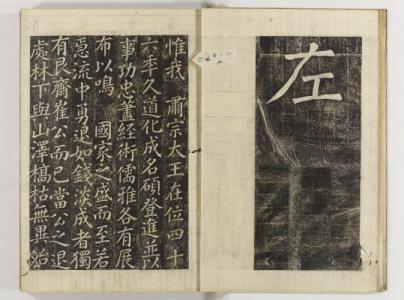 左
惟我　肅宗大王在位四十
六年久道化成名碩登進並以
事功忠藎經術儒雅各有展
布以鳴　國家之盛而至若
急流中勇退如錢淡成者獨
有艮齋崔公而已當公之退
處林下與山澤槁枯無異治